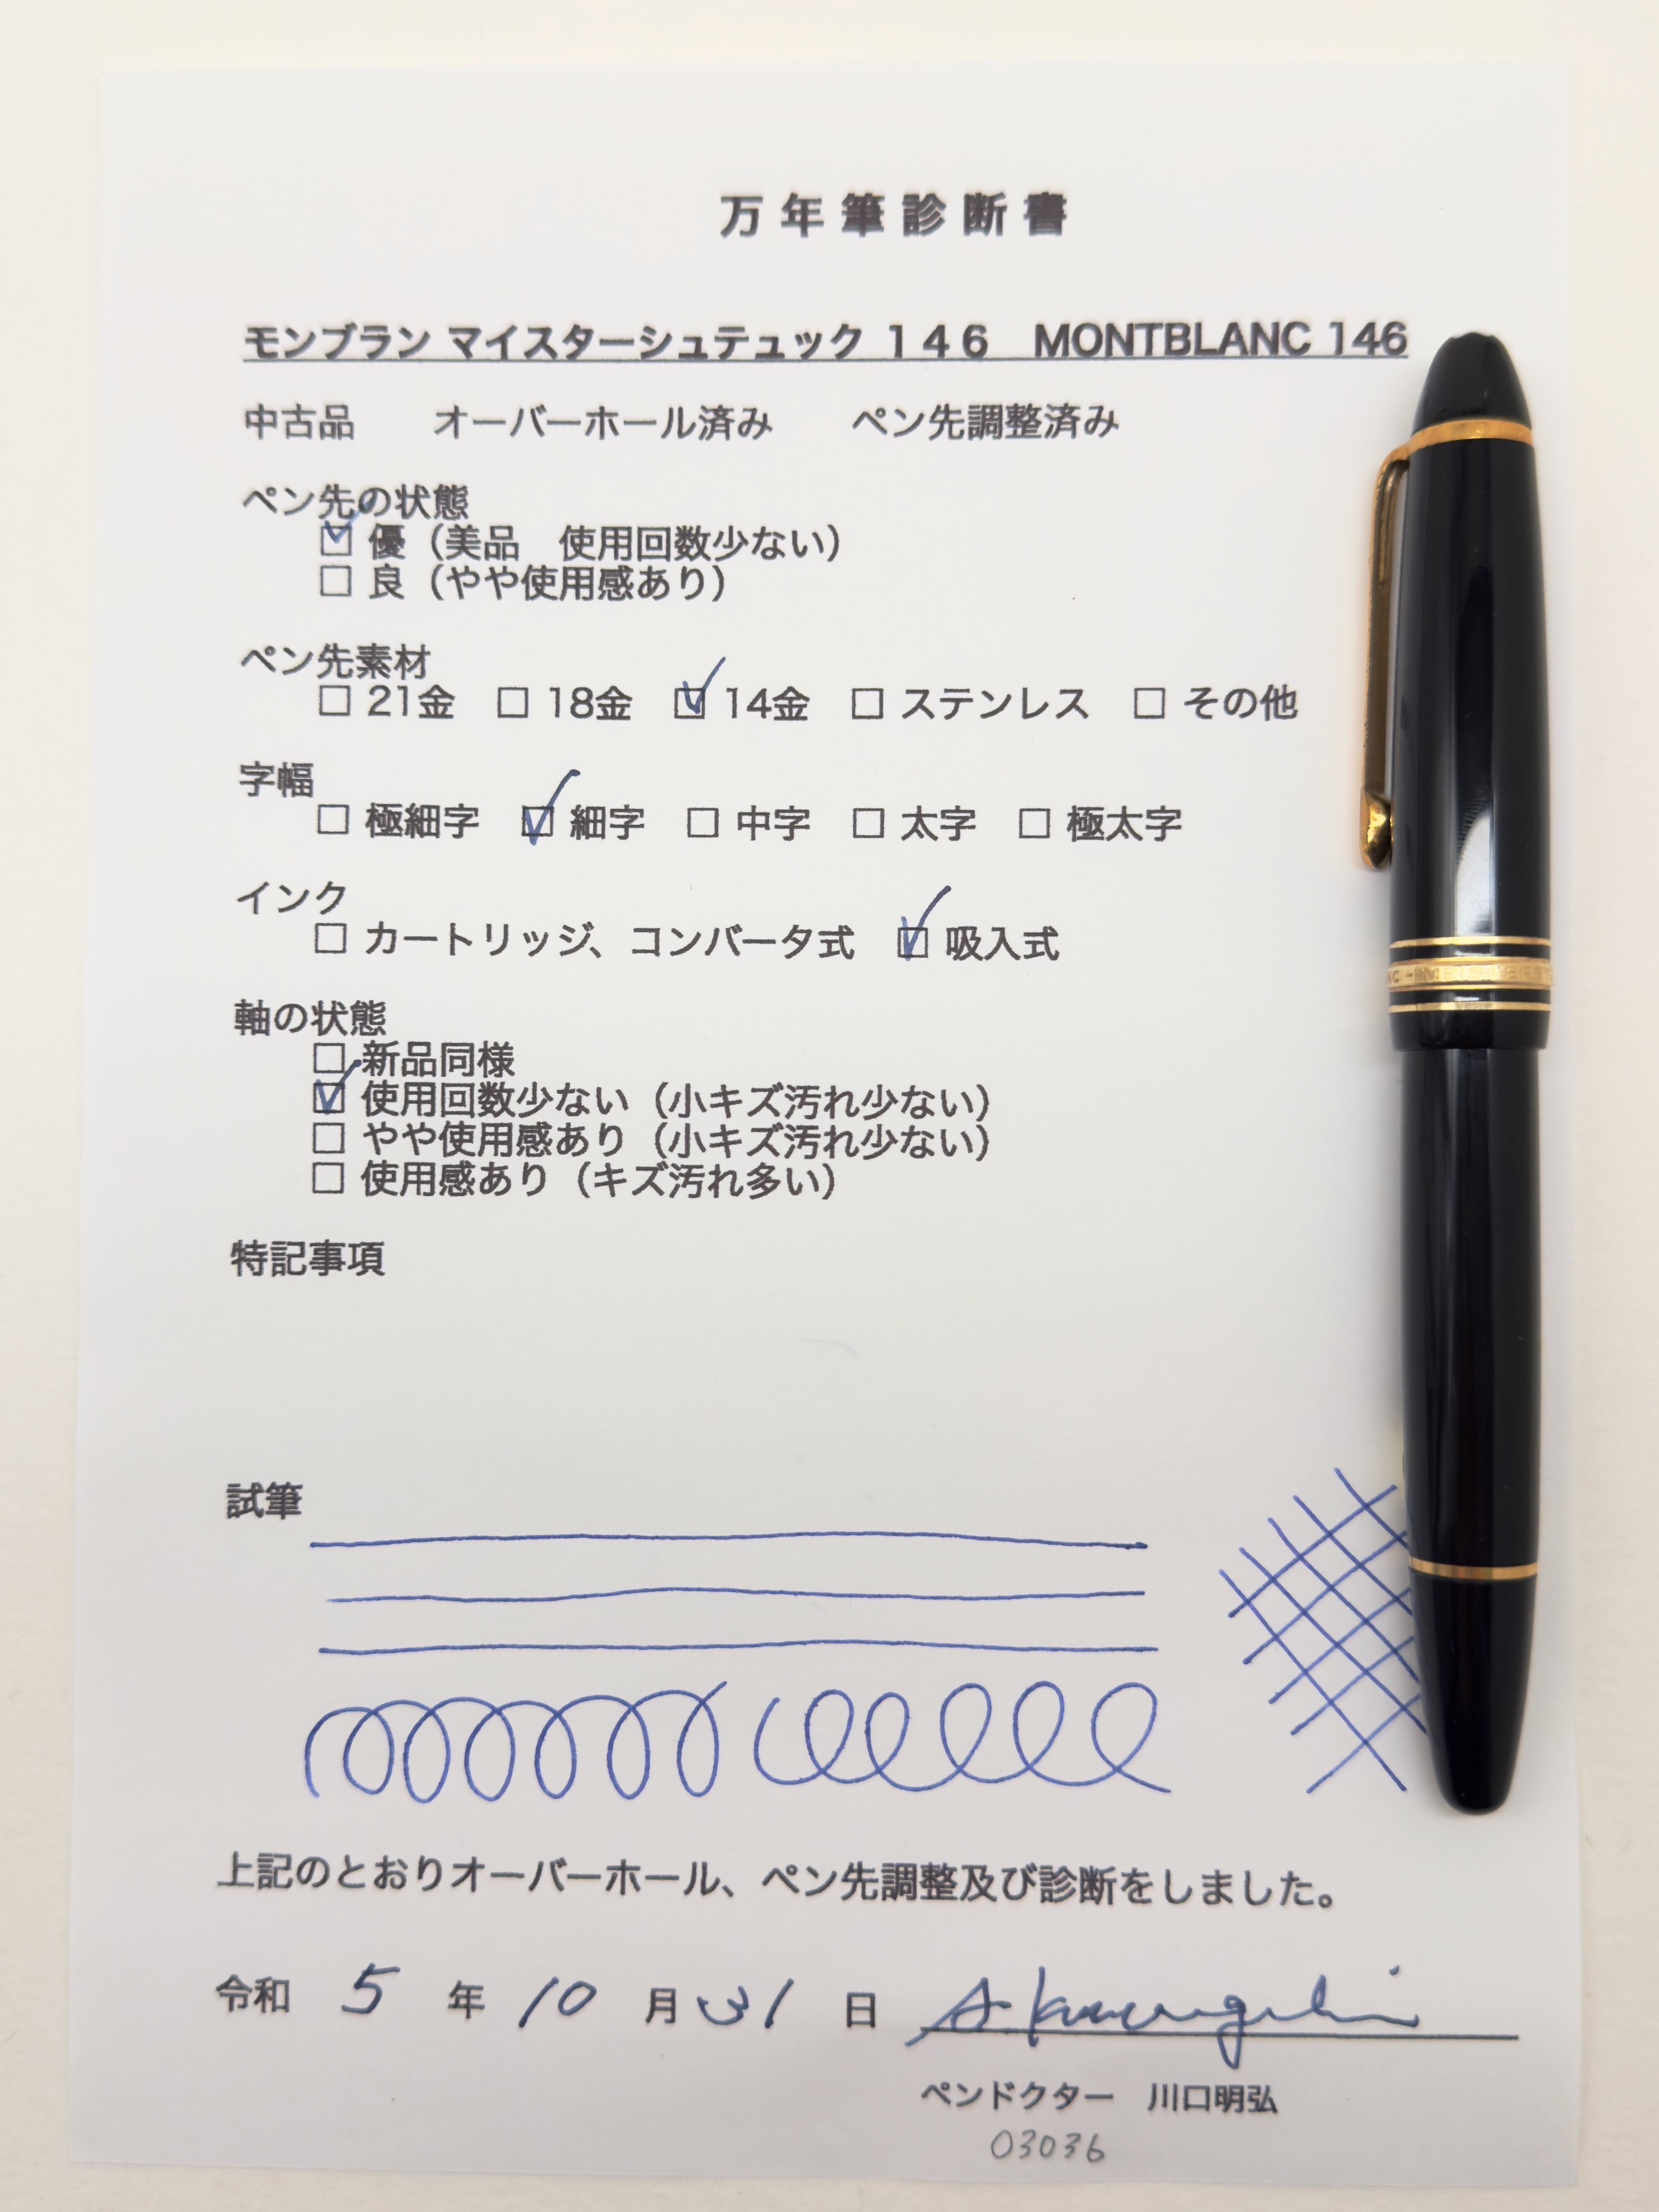 万年筆診断書
モンブラン マイスターシュテュック 146　MONTBLANC 146
中古品　　オーバーホール済み　　ペン先調整済み
ペン先の状態
☑ 優（美品　使用回数少ない）
☐ 良（やや使用感あり）
ペン先素材
☐ 21金　☐ 18金　☑ 14金　☐ ステンレス　☐ その他
字幅
☐ 極細字　☑ 細字　☐ 中字　☐ 太字　☐ 極太字
インク
☐ カートリッジ、コンバータ式　☑ 吸入式
軸の状態
☐ 新品同様
☑ 使用回数少ない（小キズ汚れ少ない）
☐ やや使用感あり（小キズ汚れ少ない）
☐ 使用感あり（キズ汚れ多い）
特記事項
試筆
上記のとおりオーバーホール、ペン先調整及び診断をしました。
令和 5 年 10 月 31 日
ペンドクター　川口明弘
03036